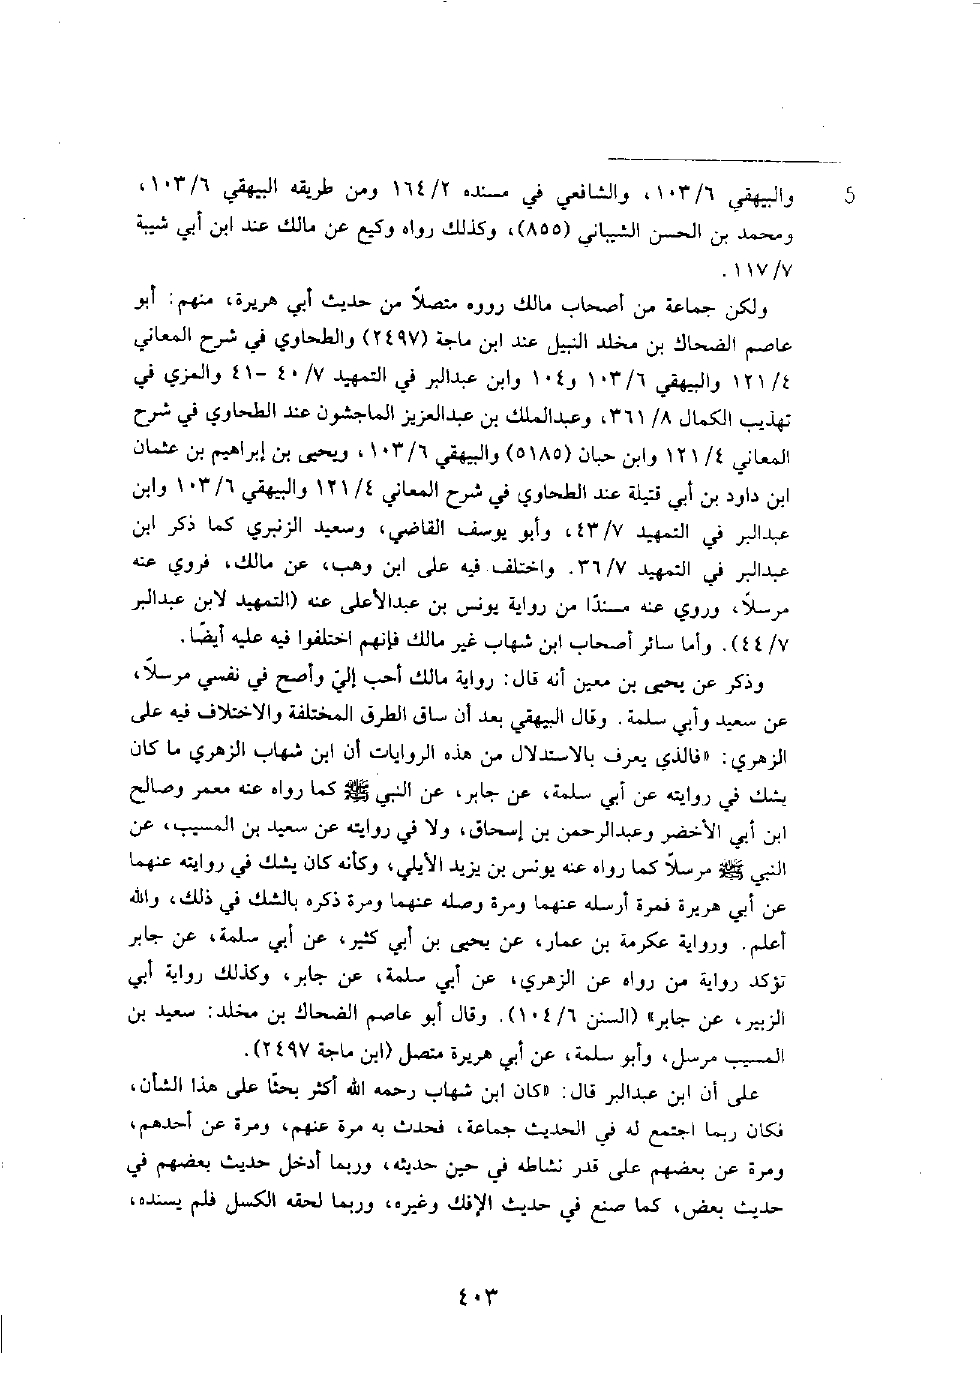 والبيهقي ٦/ ١٠٣، والشافعي في مسنده ٢/ ١٦٤ ومن طريقه البيهقي ٦/ ١٠٣،
ومحمد بن الحسن الشيباني (٨٥٥)، وكذلك رواه وكيع عن مالك عند ابن أبي شيبة
٧/ ١١٧.
ولكن جماعة من أصحاب مالك رووه متصلاً من حديث أبي هريرة، منهم: أبو
عاصم الضحاك بن مخلد النبيل عند ابن ماجة (٢٤٩٧) والطحاوي في شرح المعاني
٤/ ١٢١ والبيهقي ٦/ ١٠٣ و١٠٤ وابن عبدالبر في التمهيد ٧/ ٤٠ -٤١ والمزي في
تهذيب الكمال ٨/ ٣٦١، وعبدالملك بن عبدالعزيز الماجشون عند الطحاوي في شرح
المعاني ٤/ ١٢١ وابن حبان (٥١٨٥) والبيهقي ٦/ ١٠٣، ويحيى بن إبراهيم بن عثمان
ابن داود بن أبي قتيلة عند الطحاوي في شرح المعاني ٤/ ١٢١ والبيهقي ٦/ ١٠٣ وابن
عبدالبر في التمهيد ٧/ ٤٣، وأبو يوسف القاضي، وسعيد الزنبري كما ذكر ابن
عبدالبر في التمهيد ٧/ ٣٦. واختلف فيه على ابن وهب، عن مالك، فروي عنه
مرسلاً، وروي عنه مسندًا من رواية يونس بن عبدالأعلى عنه (التمهيد لابن عبدالبر
٧/ ٤٤). وأما سائر أصحاب ابن شهاب غير مالك فإنهم اختلفوا فيه عليه أيضًا.
وذكر عن يحيى بن معين أنه قال: رواية مالك أحب إليّ وأصح في نفسي مرسلاً،
عن سعيد وأبي سلمة. وقال البيهقي بعد أن ساق الطرق المختلفة والاختلاف فيه على
الزهري: «فالذي يعرف بالاستدلال من هذه الروايات أن ابن شهاب الزهري ما كان
يشك في روايته عن أبي سلمة، عن جابر، عن النبي ﷺ كما رواه عنه معمر وصالح
ابن أبي الأخضر وعبدالرحمن بن إسحاق، ولا في روايته عن سعيد بن المسيب، عن
النبي ﷺ مرسلاً كما رواه عنه يونس بن يزيد الأيلي، وكأنه كان يشك في روايته عنهما
عن أبي هريرة فمرة أرسله عنهما ومرة وصله عنهما ومرة ذكره بالشك في ذلك، والله
أعلم. ورواية عكرمة بن عمار، عن يحيى بن أبي كثير، عن أبي سلمة، عن جابر
تؤكد رواية من رواه عن الزهري، عن أبي سلمة، عن جابر، وكذلك رواية أبي
الزبير، عن جابر» (السنن ٦/ ١٠٤). وقال أبو عاصم الضحاك بن مخلد: سعيد بن
المسيب مرسل، وأبو سلمة، عن أبي هريرة متصل (ابن ماجة ٢٤٩٧).
على أن ابن عبدالبر قال: «كان ابن شهاب رحمه الله أكثر بحثًا على هذا الشأن،
فكان ربما اجتمع له في الحديث جماعة، فحدث به مرة عنهم، ومرة عن أحدهم،
ومرة عن بعضهم على قدر نشاطه في حين حديثه، وربما أدخل حديث بعضهم في
حديث بعض، كما صنع في حديث الإفك وغيره، وربما لحقه الكسل فلم يسنده،
٤٠٣